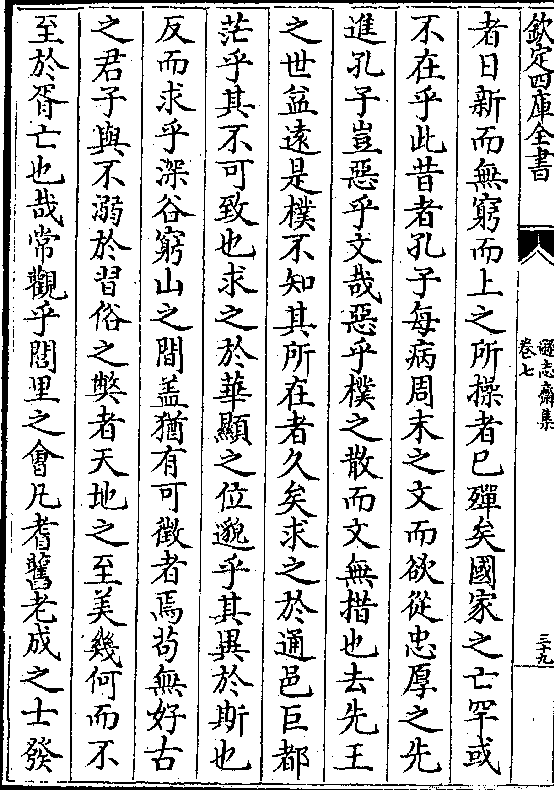 欽定四庫全書
遜志齋集
卷七
三十九
者日新而無窮而上之所操者已殫矣國家之亡罕或
不在乎此昔者孔子每病周末之文而欲從忠厚之先
進孔子豈惡乎文哉惡乎樸之散而文無措也去先王
之世益遠是樸不知其所在者久矣求之於通邑巨都
茫乎其不可致也求之於華顯之位邈乎其異於斯也
反而求乎深谷窮山之間盖猶有可徵者焉茍無好古
之君子與不溺於習俗之弊者天地之至美幾何而不
至於胥亡也哉常觀乎閭里之會凡耆舊老成之士發